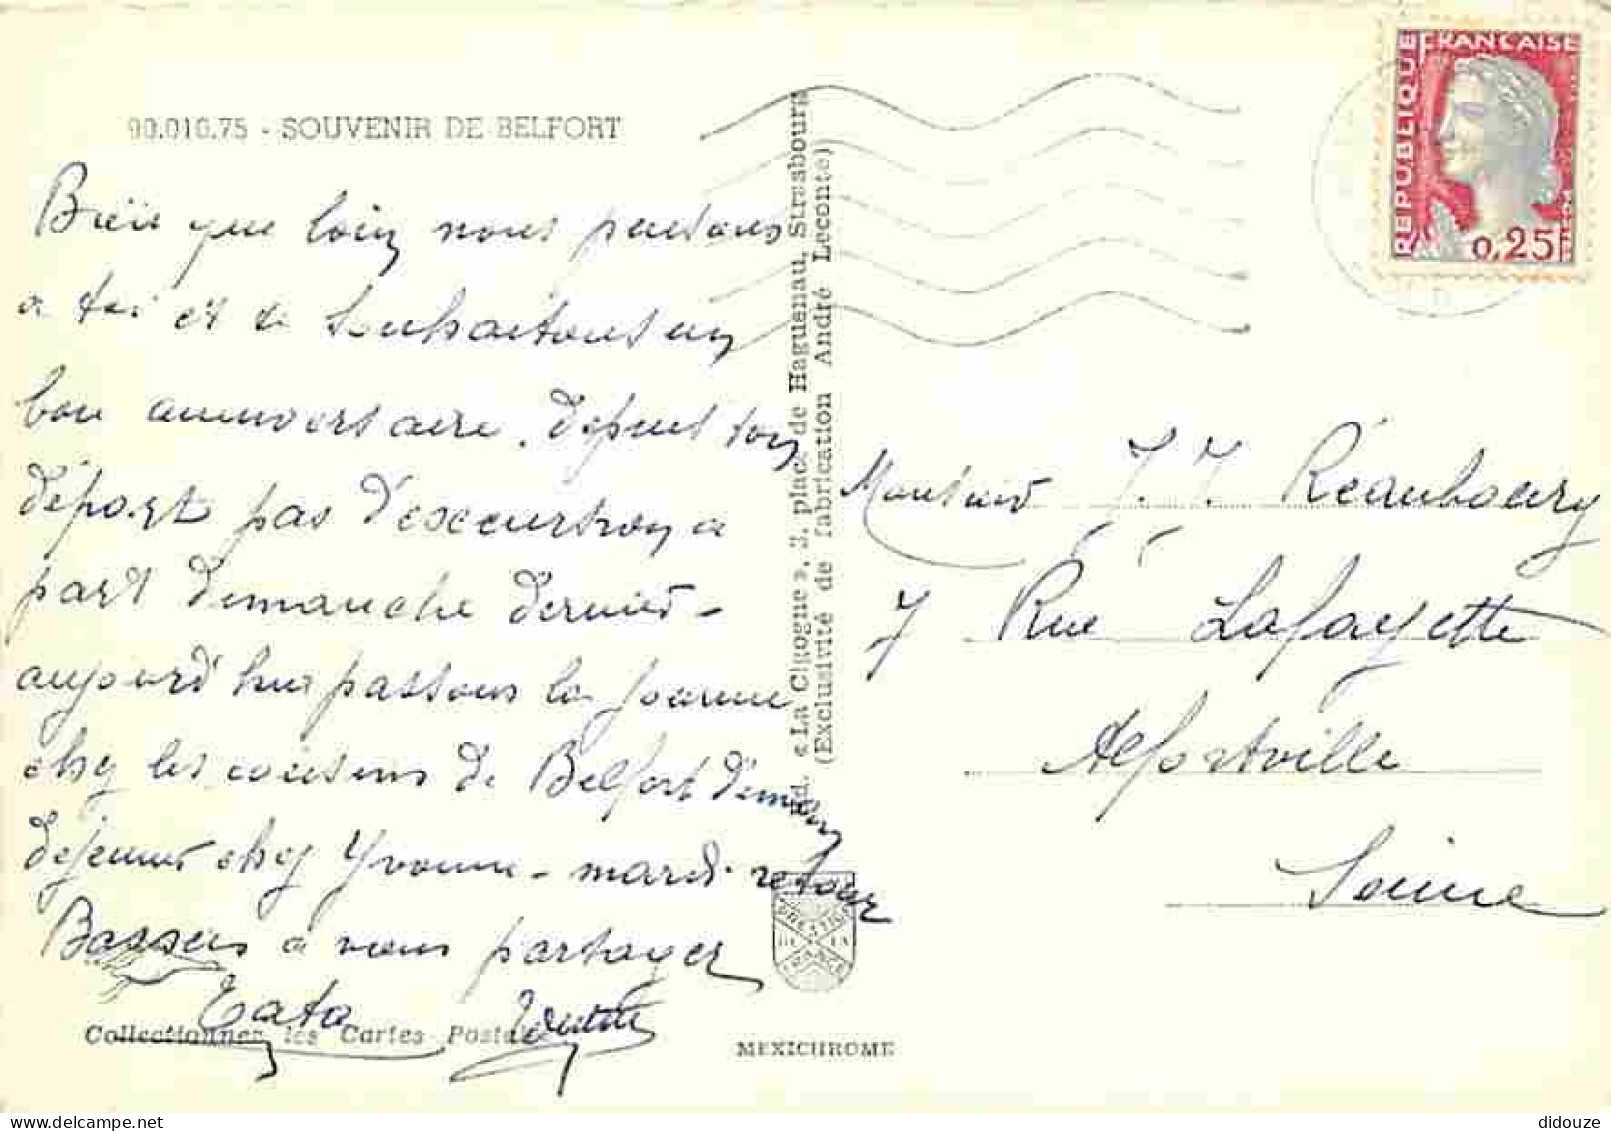 90.010.75 - SOUVENIR DE BELFORT
Bien que loin nous pensons
a toi et te souhaitons un
bon anniversaire. depuis ton
départ pas d'excurtion a
part dimanche dernier -
aujourd'hui passons la journée
chez les cousins de Belfort demain
dejeuner chez Yvonne - mardi retour
Baisers a vous partager
Tata
Collectionnez les Cartes Postales
Ed. « La Cigogne », 3, place de Haguenau, Strasbourg
(Exclusivité de fabrication André Leconte)
PRESTIGE
DE LA
FRANCE
MEXICHROME
REPUBLIQUE FRANÇAISE
0,25
Monsieur J.J. Réaubourg
7 Rue Lafayette
Alfortville
Seine
didouze
delcampe.net